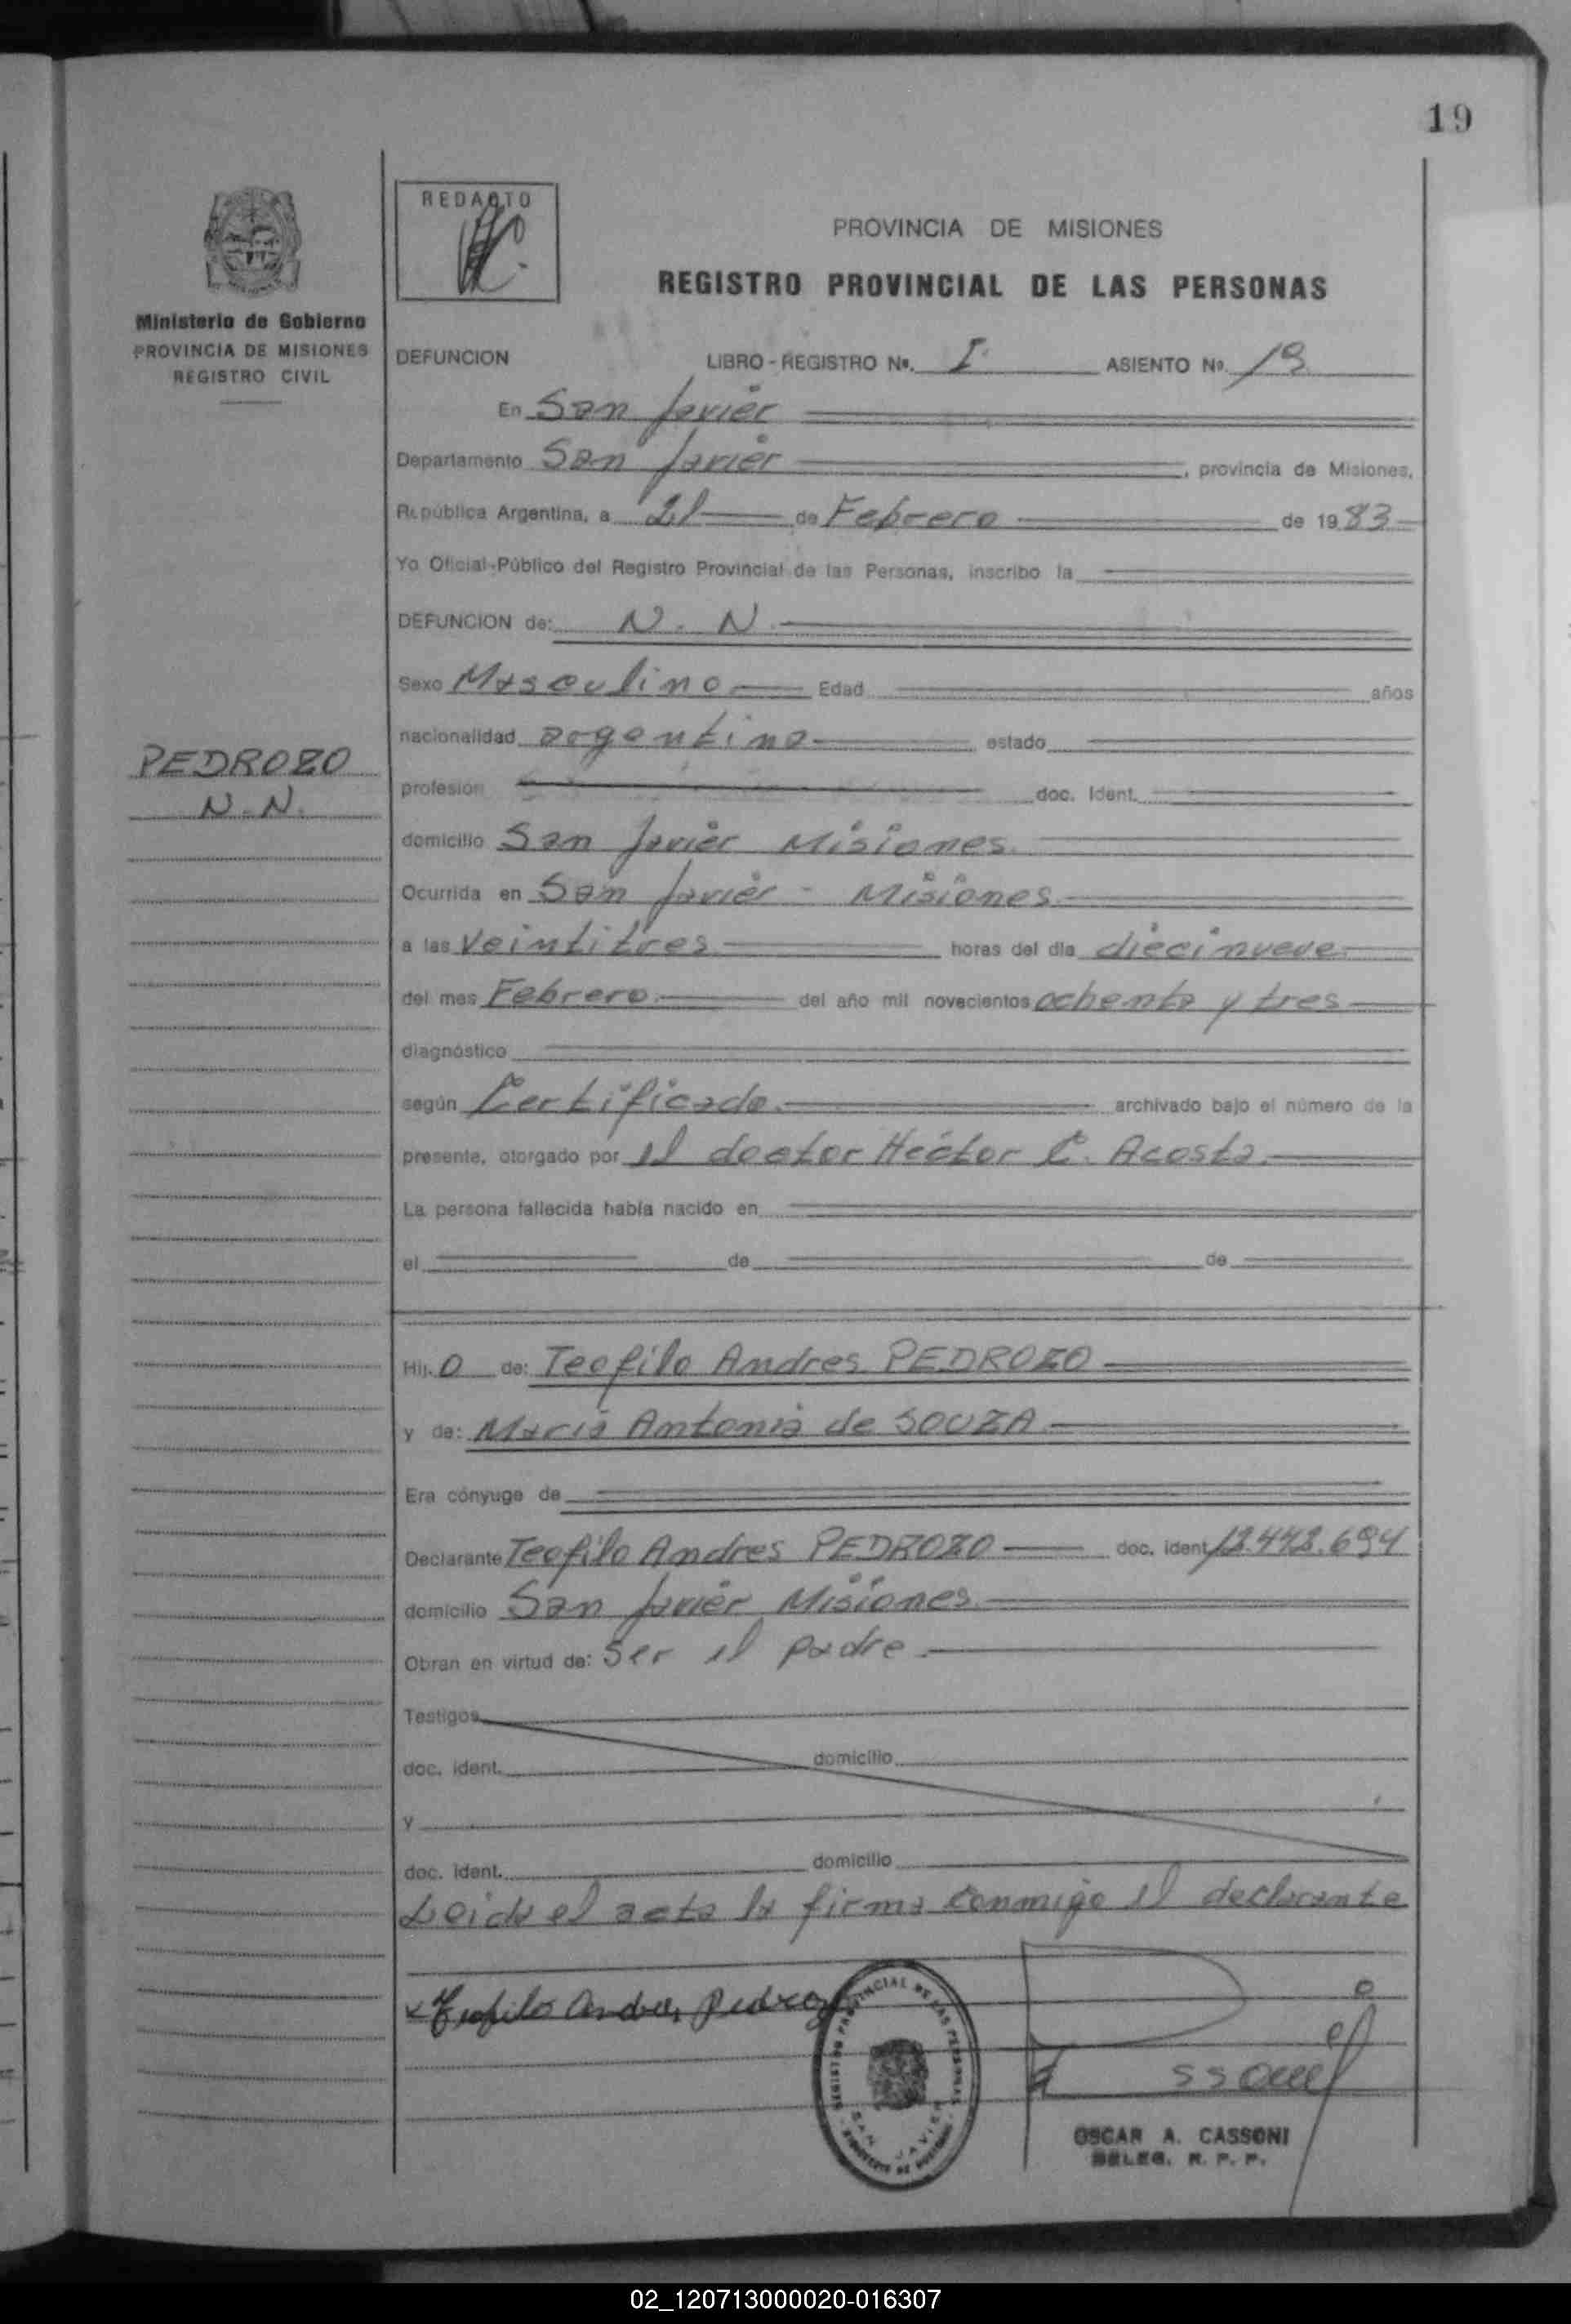 19
REDACTO
PROVINCIA DE MISIONES
REGISTRO PROVINCIAL DE LAS PERSONAS
Ministerio de Gobierno
PROVINCIA DE MISIONES
REGISTRO CIVIL
DEFUNCION LIBRO - REGISTRO Nº. I ASIENTO Nº. 19
En San Javier
Departamento San Javier, provincia de Misiones,
República Argentina, a 21 de Febrero de 1983
Yo Oficial Público del Registro Provincial de las Personas, inscribo la
DEFUNCION de: N. N
Sexo Masculino Edad años
nacionalidad argentina estado
PEDROZO
N.N.
profesión doc. Ident.
domicilio San Javier Misiones
Ocurrida en San Javier - Misiones
a las veintitres horas del día diecinueve
del mes Febrero del año mil novecientos ochenta y tres
diagnóstico
según Certificado archivado bajo el número de la
presente, otorgado por el doctor Héctor C. Acosta
La persona fallecida había nacido en
el de de
Hij. o de: Teofilo Andres PEDROZO
y de: Maria Antonia de SOUZA
Era cónyuge de
Declarante Teofilo Andres PEDROZO doc. ident. 12.442.694
domicilio San Javier Misiones
Obran en virtud de: Ser el padre
Testigos
doc. ident. domicilio
y
doc. ident. domicilio
Leida el acta la firma conmigo el declarante
Teofilo Andres Pedrozo
REGISTRO PROVINCIAL DE LAS PERSONAS
SAN JAVIER
OSCAR A. CASSONI
DELEG. R. P. P.
02_120713000020-016307